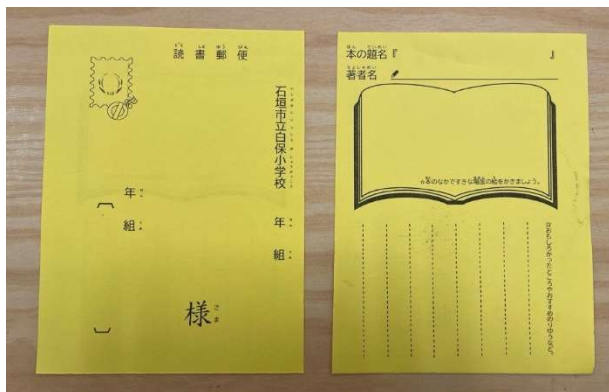 読書郵便
石垣市立白保小学校
年 組
様
年 組
本の題名『 』
著者名
☆本のなかですきな場面の絵をかきましょう。
☆おもしろかったところやおすすめのりゆうなど。